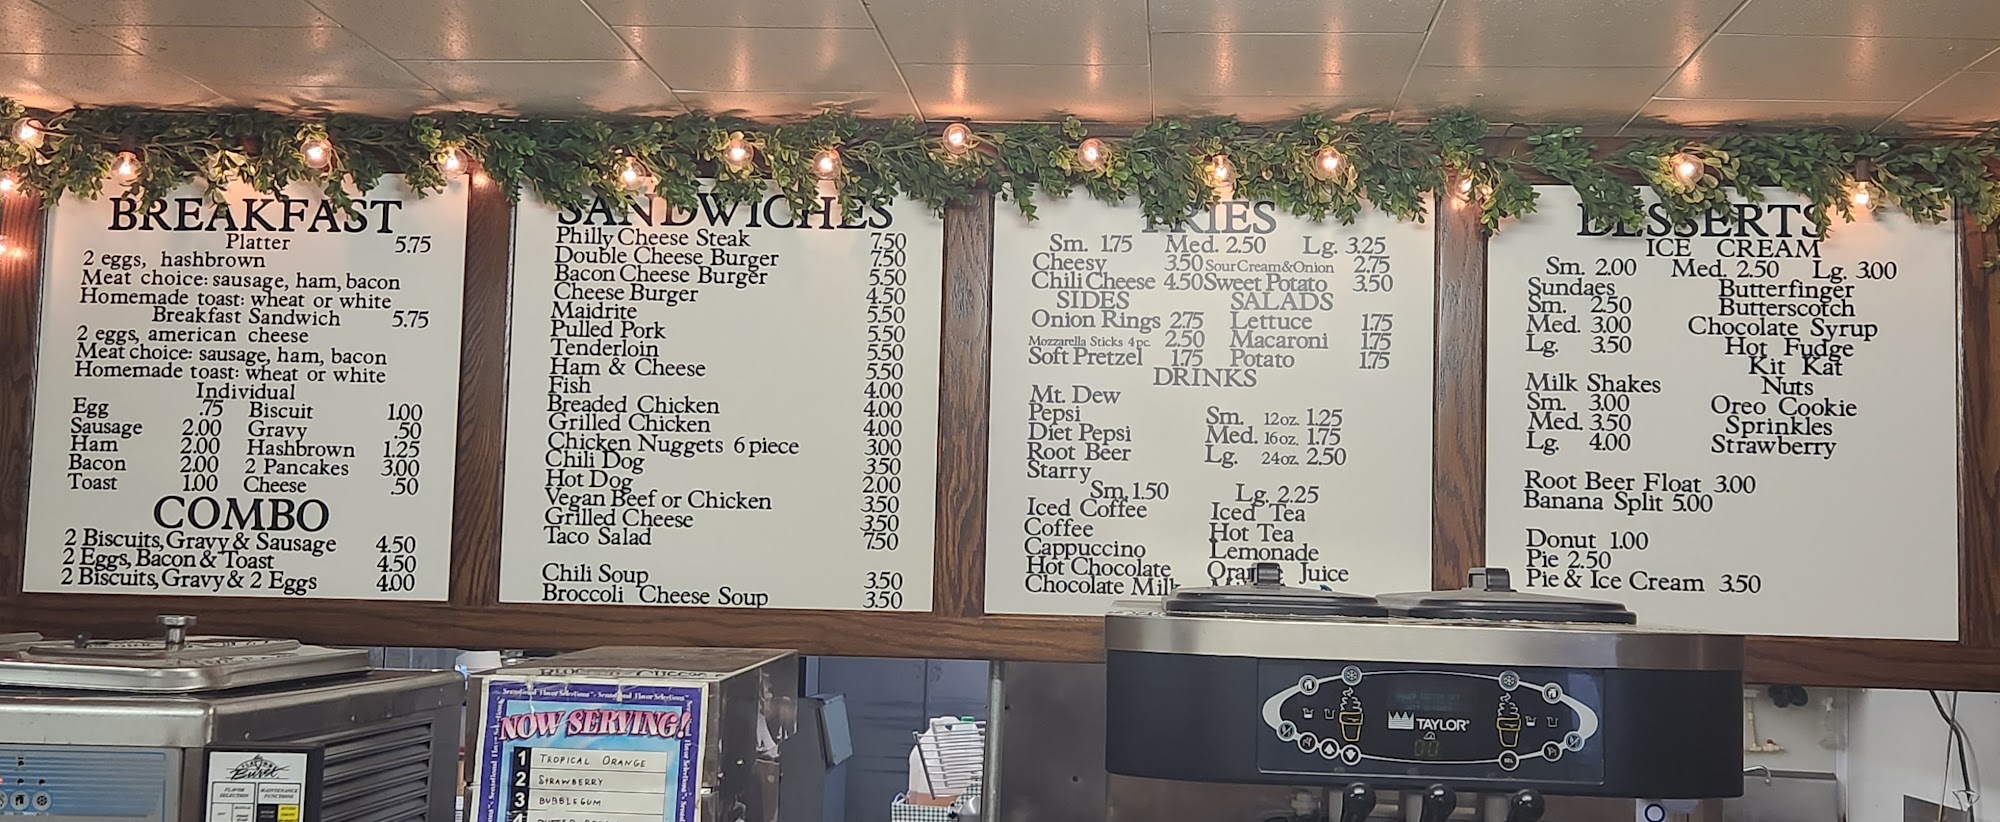 BREAKFAST
Platter 5.75
2 eggs, hashbrown
Meat choice: sausage, ham, bacon
Homemade toast: wheat or white
Breakfast Sandwich 5.75
2 eggs, american cheese
Meat choice: sausage, ham, bacon
Homemade toast: wheat or white
Individual
Egg .75 Biscuit 1.00
Sausage 2.00 Gravy .50
Ham 2.00 Hashbrown 1.25
Bacon 2.00 2 Pancakes 3.00
Toast 1.00 Cheese .50
COMBO
2 Biscuits, Gravy & Sausage 4.50
2 Eggs, Bacon & Toast 4.50
2 Biscuits, Gravy & 2 Eggs 4.00
SANDWICHES
Philly Cheese Steak 7.50
Double Cheese Burger 7.50
Bacon Cheese Burger 5.50
Cheese Burger 4.50
Maidrite 5.50
Pulled Pork 5.50
Tenderloin 5.50
Ham & Cheese 5.50
Fish 4.00
Breaded Chicken 4.00
Grilled Chicken 4.00
Chicken Nuggets 6 piece 3.00
Chili Dog 3.50
Hot Dog 2.00
Vegan Beef or Chicken 3.50
Grilled Cheese 3.50
Taco Salad 7.50
Chili Soup 3.50
Broccoli Cheese Soup 3.50
FRIES
Sm. 1.75 Med. 2.50 Lg. 3.25
Cheesy 3.50 Sour Cream & Onion 2.75
Chili Cheese 4.50 Sweet Potato 3.50
SIDES SALADS
Onion Rings 2.75 Lettuce 1.75
Mozzarella Sticks 4 pc. 2.50 Macaroni 1.75
Soft Pretzel 1.75 Potato 1.75
DRINKS
Mt. Dew
Pepsi Sm. 12oz. 1.25
Diet Pepsi Med. 16oz. 1.75
Root Beer Lg. 24oz. 2.50
Starry
Sm. 1.50 Lg. 2.25
Iced Coffee Iced Tea
Coffee Hot Tea
Cappuccino Lemonade
Hot Chocolate Orange Juice
Chocolate Milk
DESSERTS
ICE CREAM
Sm. 2.00 Med. 2.50 Lg. 3.00
Sundaes Butterfinger
Sm. 2.50 Butterscotch
Med. 3.00 Chocolate Syrup
Lg. 3.50 Hot Fudge
Kit Kat
Milk Shakes Nuts
Sm. 3.00 Oreo Cookie
Med. 3.50 Sprinkles
Lg. 4.00 Strawberry
Root Beer Float 3.00
Banana Split 5.00
Donut 1.00
Pie 2.50
Pie & Ice Cream 3.50
NOW SERVING!
1 TROPICAL ORANGE
2 STRAWBERRY
3 BUBBLEGUM
Flavor Burst
FLAVOR SELECTION
MAINTENANCE FUNCTIONS
TAYLOR